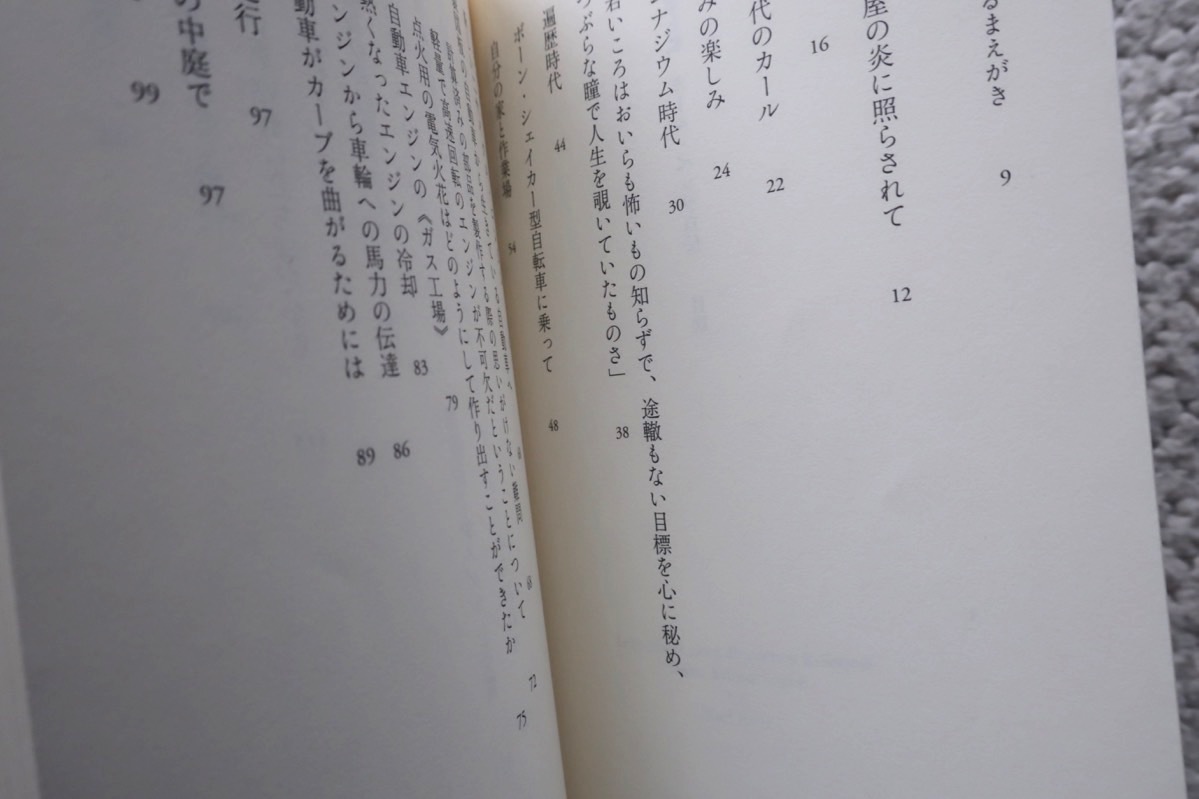 るまえがき 9
屋の炎に照らされて 12
16
代のカール 22
みの楽しみ 24
ナジウム時代 30
若いころはおいらも怖いもの知らずで、途轍もない目標を心に秘め、
つぶらな瞳で人生を覗いていたものさ」 38
遍歴時代 44
ボーン・シェイカー型自転車に乗って 48
自分の家と作業場 54
思いがけない難問 68
の部品を製作する際の
72
軽量で高速回転のエンジンが不可欠だということについて
点火用の電気火花はどのようにして作り出すことができたか 75
自動車エンジンの《ガス工場》 79
熱くなったエンジンの冷却 83
ンジンから車輪への馬力の伝達 86
動車がカーブを曲がるためには 89
行 97
97
の中庭で 99